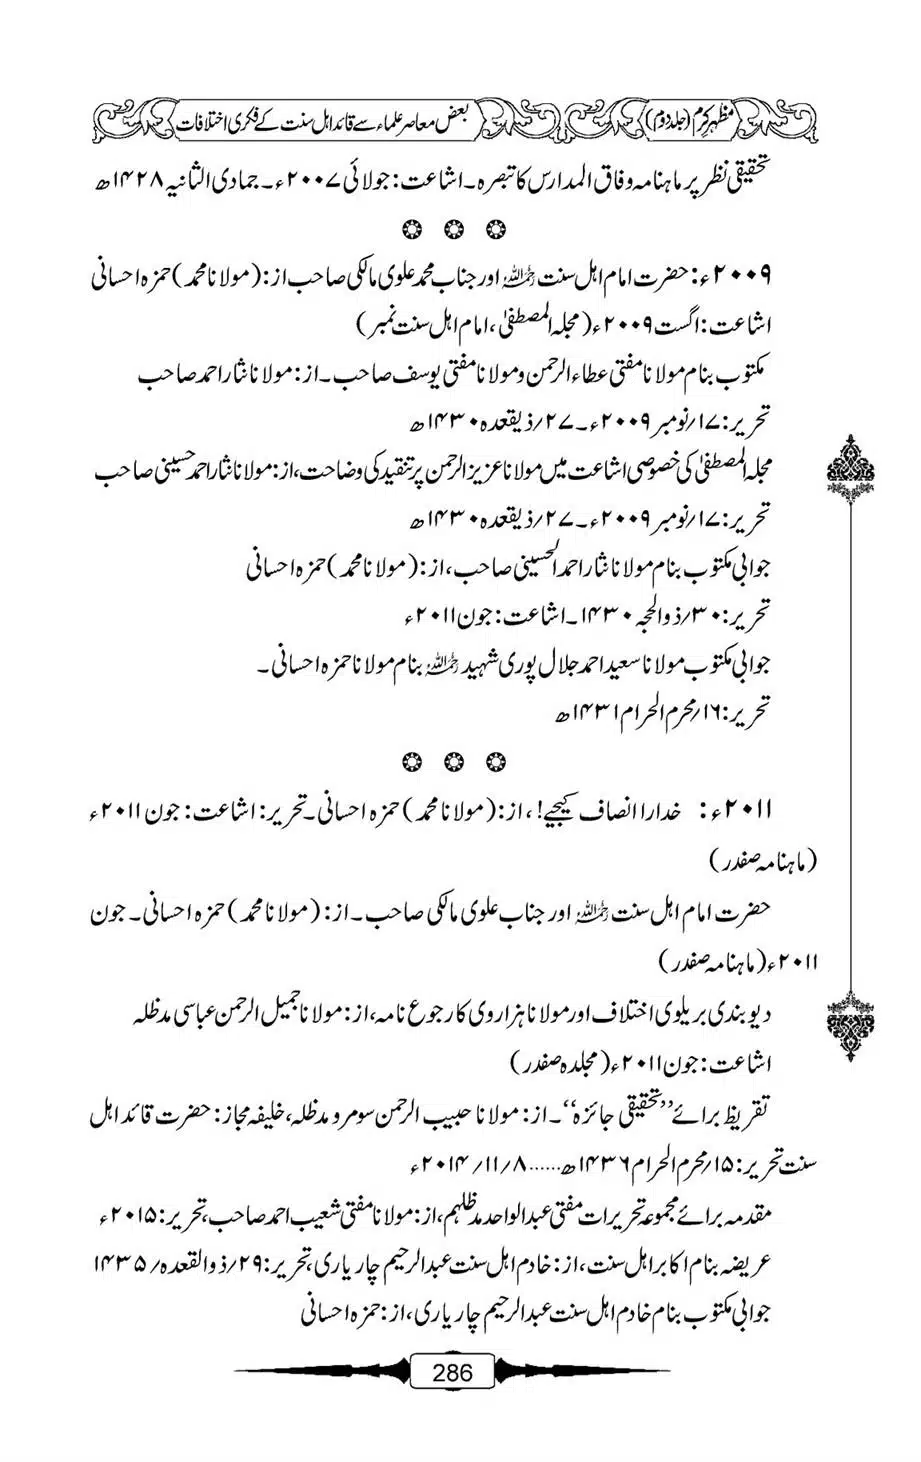 مظہرِ کرم (جلد دوم)
بعض معاصر علماء سے قائد اہل سنت کے فکری اختلافات
تحقیقی نظر پر ماہنامہ وفاق المدارس کا تبصرہ۔ اشاعت: جولائی ۲۰۰۷ء۔ جمادی الثانیہ ۱۴۲۸ھ
۲۰۰۹ء: حضرت امام اہل سنت رحمہ اللہ اور جناب محمد علوی مالکی صاحب از: (مولانا محمد) حمزہ احسانی
اشاعت: اگست ۲۰۰۹ء (مجلہ المصطفیٰ، امام اہل سنت نمبر)
مکتوب بنام مولانا مفتی عطاء الرحمن و مولانا مفتی یوسف صاحب۔ از: مولانا نثار احمد صاحب
تحریر: ۱۷/نومبر ۲۰۰۹ء۔ ۲۷/ذیقعدہ ۱۴۳۰ھ
مجلہ المصطفیٰ کی خصوصی اشاعت میں مولانا عزیز الرحمن پر تنقید کی وضاحت، از: مولانا نثار احمد حسینی صاحب
تحریر: ۱۷/نومبر ۲۰۰۹ء۔ ۲۷/ذیقعدہ ۱۴۳۰ھ
جوابی مکتوب بنام مولانا نثار احمد الحسینی صاحب، از: (مولانا محمد) حمزہ احسانی
تحریر: ۳۰/ذوالحجہ ۱۴۳۰۔ اشاعت: جون ۲۰۱۱ء
جوابی مکتوب مولانا سعید احمد جلال پوری شہید رحمہ اللہ بنام مولانا حمزہ احسانی۔
تحریر: ۱۶/محرم الحرام ۱۴۳۱ھ
۲۰۱۱ء: خدارا انصاف کیجیے!، از: (مولانا محمد) حمزہ احسانی۔ تحریر: اشاعت: جون ۲۰۱۱ء
(ماہنامہ صفدر)
حضرت امام اہل سنت رحمہ اللہ اور جناب علوی مالکی صاحب۔ از: (مولانا محمد) حمزہ احسانی۔ جون
۲۰۱۱ء (ماہنامہ صفدر)
دیوبندی بریلوی اختلاف اور مولانا ہزاروی کا رجوع نامہ، از: مولانا جمیل الرحمن عباسی مدظلہ
اشاعت: جون ۲۰۱۱ء (مجلدہ صفدر)
تقریظ برائے ’’تحقیقی جائزہ‘‘۔ از: مولانا حبیب الرحمن سومرو مدظلہ، خلیفہ مجاز: حضرت قائد اہل
سنت تحریر: ۱۵/محرم الحرام ۱۴۳۶ھ......۸/۱۱/۲۰۱۴ء
مقدمہ برائے مجموعہ تحریرات مفتی عبدالواحد مدظلہم، از: مولانا مفتی شعیب احمد صاحب، تحریر: ۲۰۱۵ء
عریضہ بنام اکابر اہل سنت، از: خادم اہل سنت عبدالرحیم چاریاری، تحریر: ۲۹/ذوالقعدہ/۱۴۳۵
جوابی مکتوب بنام خادم اہل سنت عبدالرحیم چاریاری، از: حمزہ احسانی
286